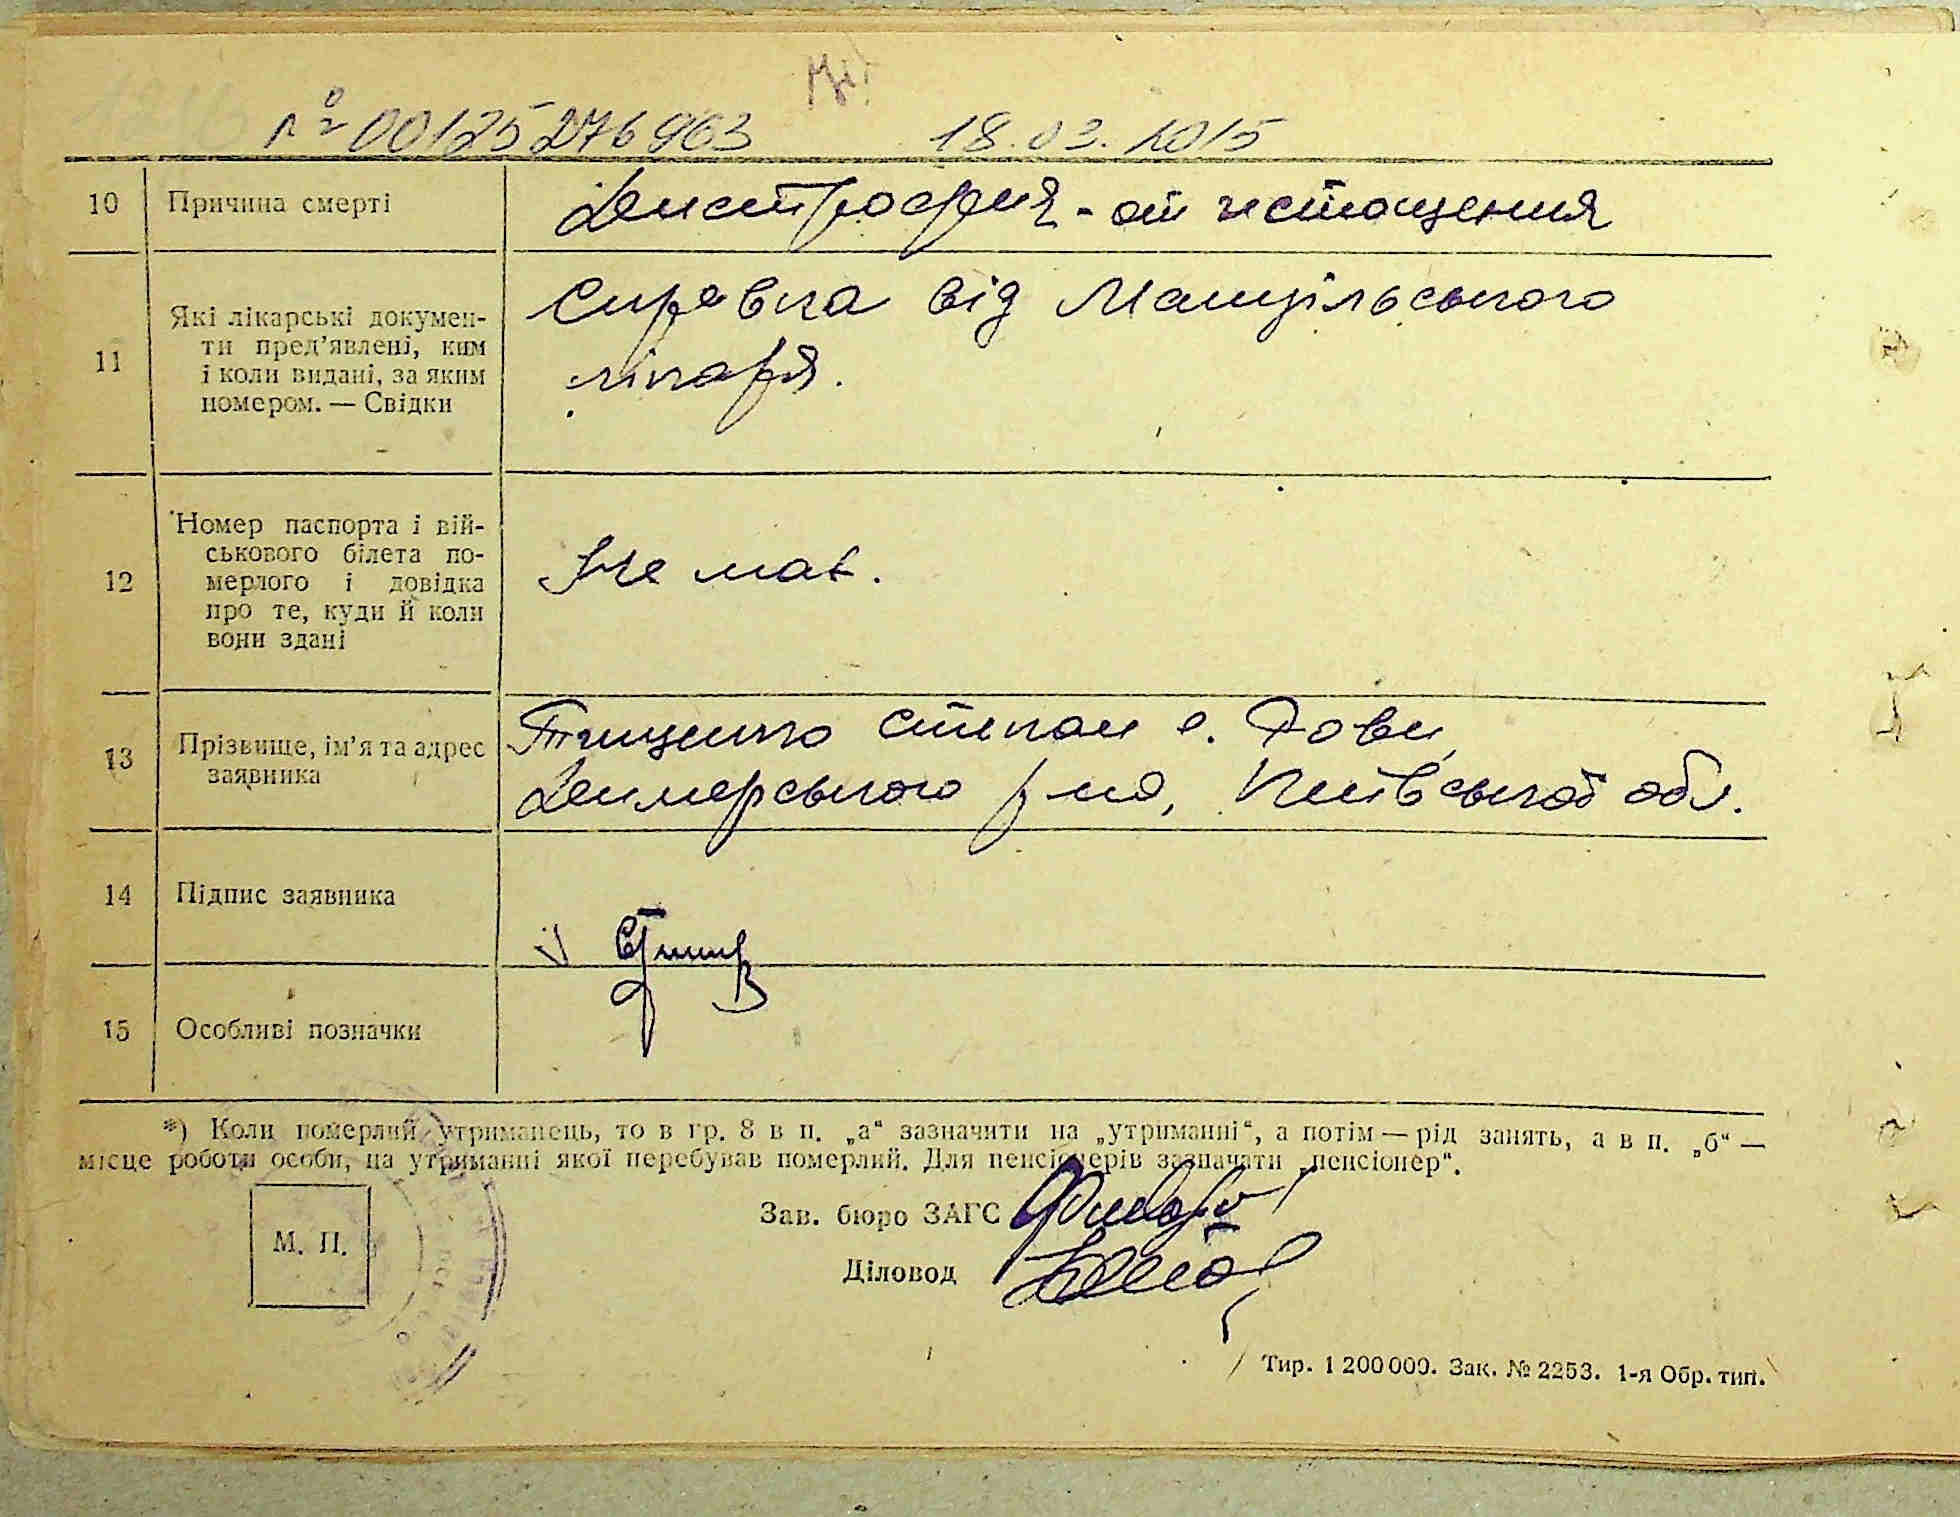 № 00125276963 18.03.2015
10 Причина смерті Дистрофия - от истощения
11 Які лікарські докумен-
ти пред'явлені, ким
і коли видані, за яким
номером. — Свідки
Справка від
лікаря.
12 Номер паспорта і вій-
ськового білета по-
мерлого і довідка
про те, куди й коли
вони здані
Не має.
13 Прізвище, ім'я та адрес
заявника
Тищенко Степан с.
Димерського р-на, Київської обл.
14 Підпис заявника
15 Особливі позначки
*) Коли померлий утриманець, то в гр. 8 в п. „а“ зазначити на „утриманні“, а потім — рід занять, а в п. „б“ —
місце роботи особи, на утриманні якої перебував померлий. Для пенсіонерів зазначати „пенсіонер“.
М. П.
Зав. бюро ЗАГС
Діловод
Тир. 1 200 000. Зак. № 2253. 1-я Обр. тип.